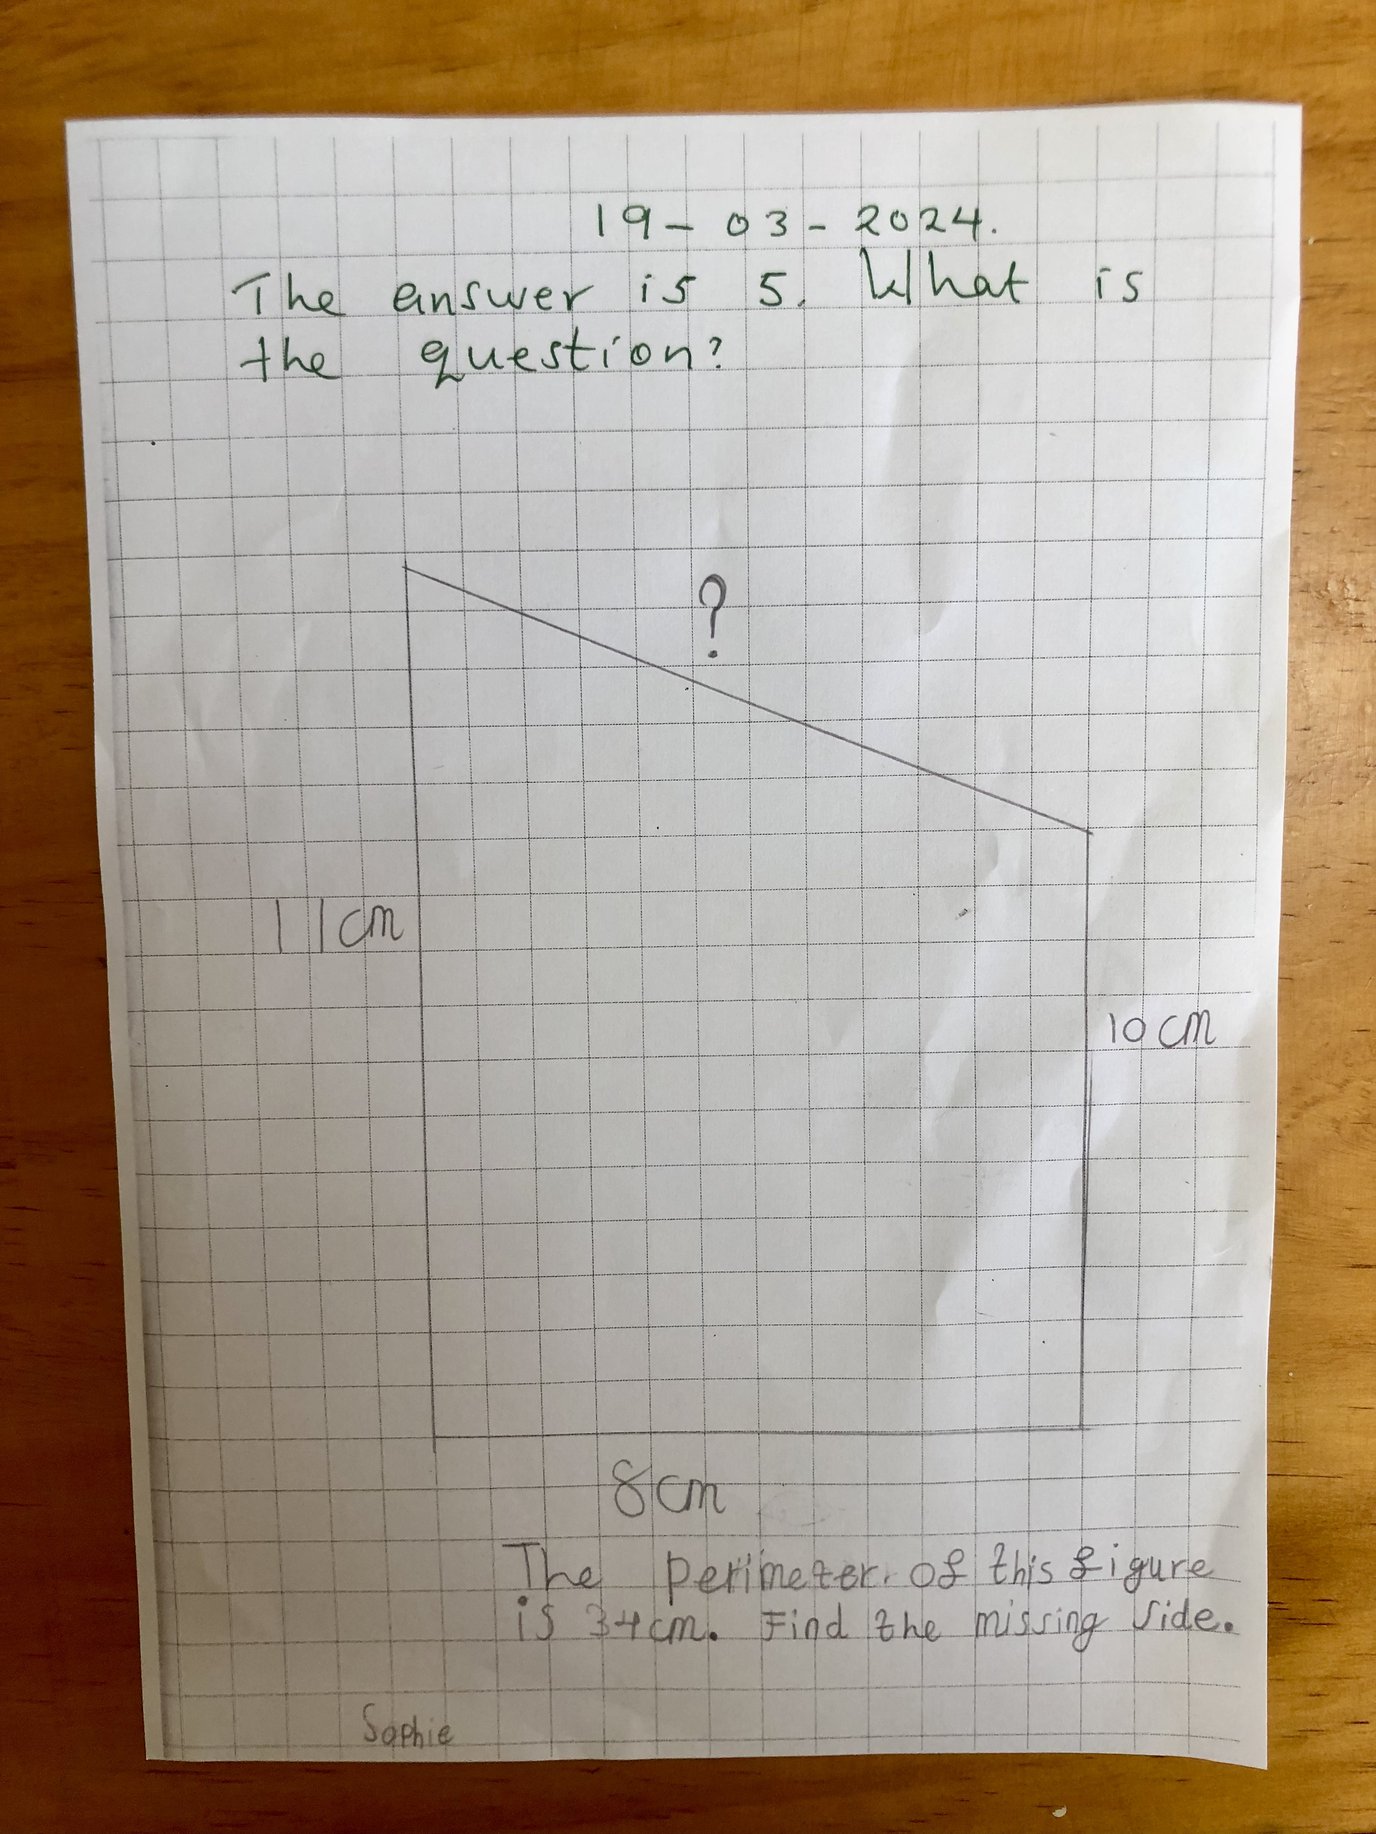 19-03-2024.
The answer is 5. What is
the question?
?
11cm
10cm
8cm
The perimeter. of this figure
is 34cm. Find the missing side.
Sophie